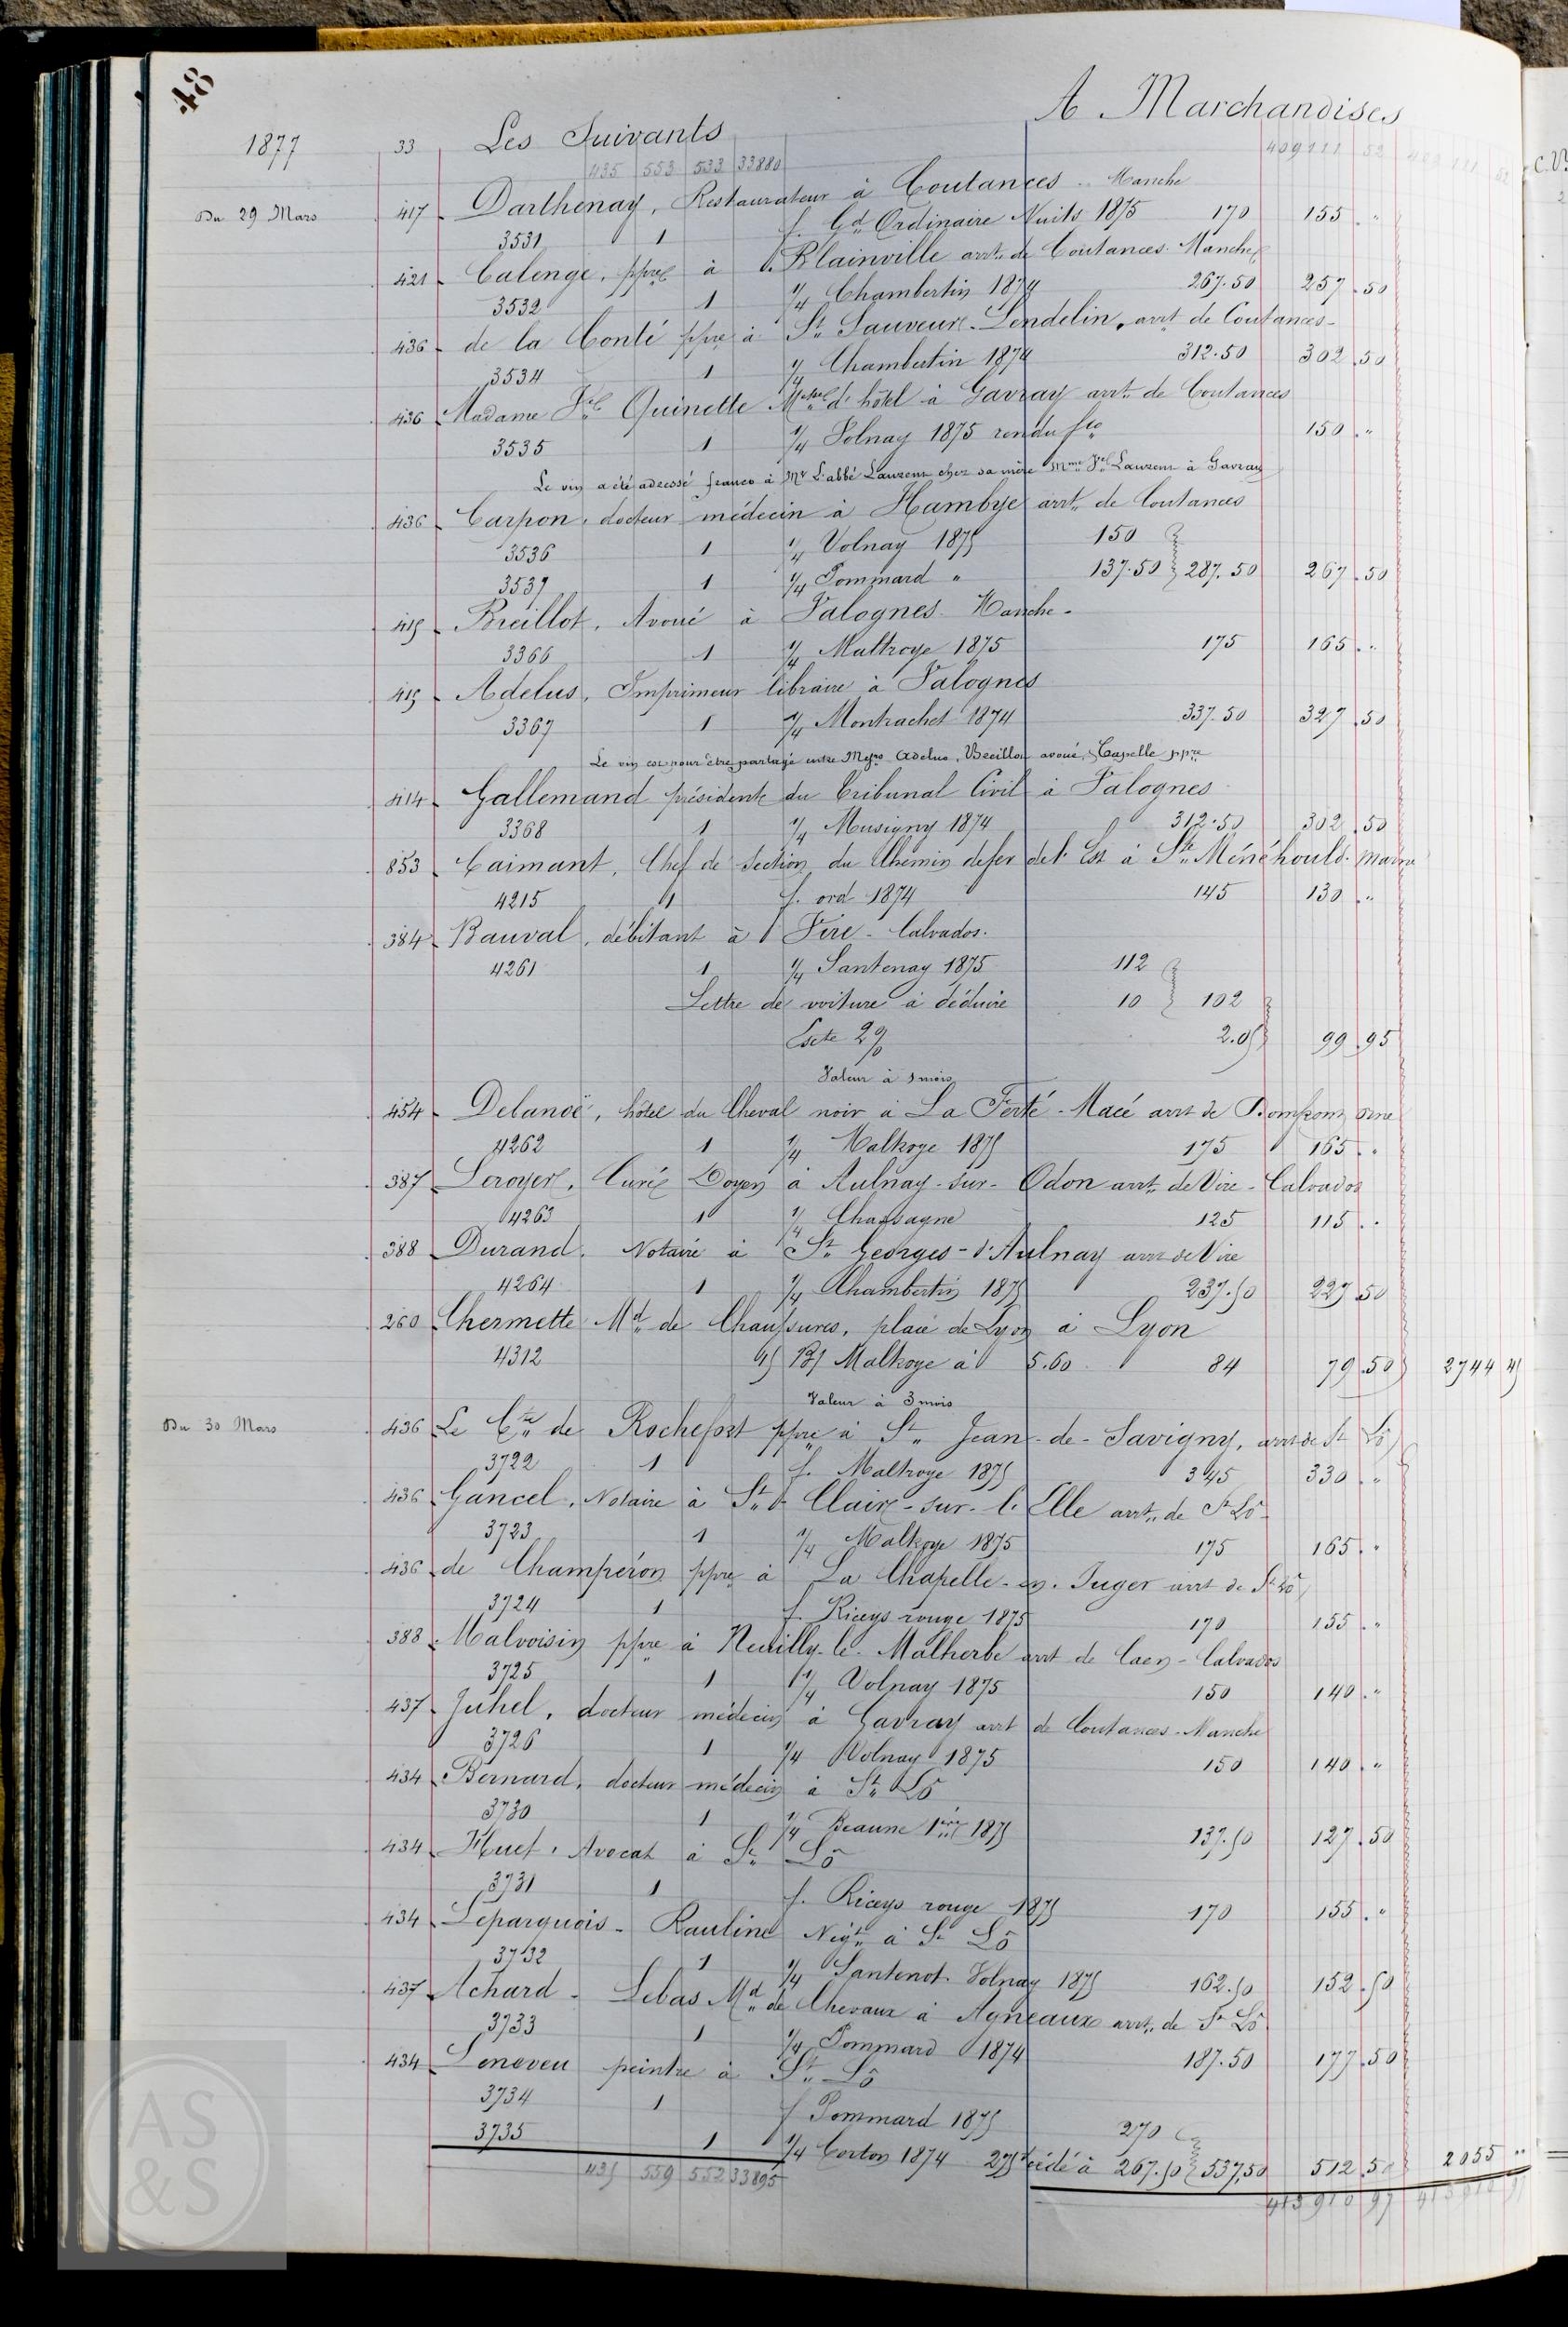 48
A Marchandises
1877 33 Les Suivants
435 553 533 33880 409111 52
Du 29 Mars 417 Darthenay, Restaurateur à Coutances Manche
3531 1 f. Gd Ordinaire Nuits 1875 170 155 "
421 Calenge, ppre à Blainville arrt de Coutances Manche
3532 1 1/4 Chambertin 1874 267.50 257.50
436 de la Conté ppre à St Sauveur-Lendelin, arrt de Coutances
3534 1 1/4 Chambertin 1874 312.50 302.50
436 Madame Quinette Mtsse d'hôtel à Gavray arrt de Coutances
3535 1 1/4 Volnay 1875 rendu fco 150 "
Le vin a été adressé franco à Mr L'abbé Laurent chez sa mère Mme Laurent à Gavray
436 Carpon, docteur médecin à Hambye arrt de Coutances
3536 1 1/4 Volnay 1875 150
3537 1 1/4 Pommard " 137.50 287.50 267.50
415 Breillot, Avoué à Valognes Manche
3366 1 1/4 Maltroye 1875 175 165 "
415 Adelus, Imprimeur libraire à Valognes
3367 1 1/4 Montrachet 1874 337.50 327.50
Le vin est pour être partagé entre Adelus, Breillot avoué, Capelle ppre
414 Gallemand président du Tribunal Civil à Valognes
3368 1 1/4 Musigny 1874 312.50 302.50
853 Caimant, Chef de Section du Chemin de fer de l'Est à Ste Ménéhould. Marne
4215 1 f. ord 1874 145 130 "
384 Bauval, débitant à Vire - Calvados.
4261 1 1/4 Santenay 1875 112
Lettre de voiture à déduire 10 102
Escte 2% 2.05 99.95
Valeur à mois
454 Delanoë, hôtel du Cheval noir à La Ferté-Macé arrt de Domfront Orne
4262 1 1/4 Maltroye 1875 175 165 "
387 Leroyer, Curé Doyen à Aulnay-sur-Odon arrt de Vire - Calvados
4263 1 1/4 Chassagne 125 115 "
388 Durand, Notaire à St Georges-d'Aulnay arrt de Vire
4264 1 1/4 Chambertin 1875 237.50 227.50
260 Chermette Md de Chaussures, place de Lyon à Lyon
4312 15 Btl Maltroye à 5.60 84 79.50 2744 45
Valeur à 3 mois
Du 30 Mars 436 Le Cte de Rochefort ppre à St Jean-de-Savigny, arrt de St Lô
3722 1 f. Maltroye 1875 345 330 "
436 Gancel, Notaire à St Clair-sur-l'Elle arrt de St Lô
3723 1 1/4 Maltroye 1875 175 165 "
436 de Champéron ppre à La Chapelle-en-Juger arrt de St Lô
3724 1 f Riceys rouge 1875 170 155 "
388 Malvoisin ppre à Neuilly-le-Malherbe arrt de Caen - Calvados
3725 1 1/4 Volnay 1875 150 140 "
437 Juhel, docteur médecin à Gavray arrt de Coutances - Manche
3726 1 1/4 Volnay 1875 150 140 "
434 Bernard, docteur médecin à St Lô
3730 1 1/4 Beaune 1ère 1875 137.50 127.50
434 Huet, Avocat à St Lô
3731 1 f. Riceys rouge 1875 170 155 "
434 Leparquois - Rauline Négt à St Lô
3732 1 1/4 Santenot Volnay 1875 162.50 152.50
437 Achard - Lebas Md de Chevaux à Agneaux arrt de St Lô
3733 1 1/4 Pommard 1874 187.50 177.50
434 Leneveu peintre à St Lô
3734 1 f Pommard 1875 270
3735 1 1/4 Corton 1874 275 cédé à 267.50 537.50 512.50 2055 "
435 559 552 33895 413910 97
C.V.
AS
&S